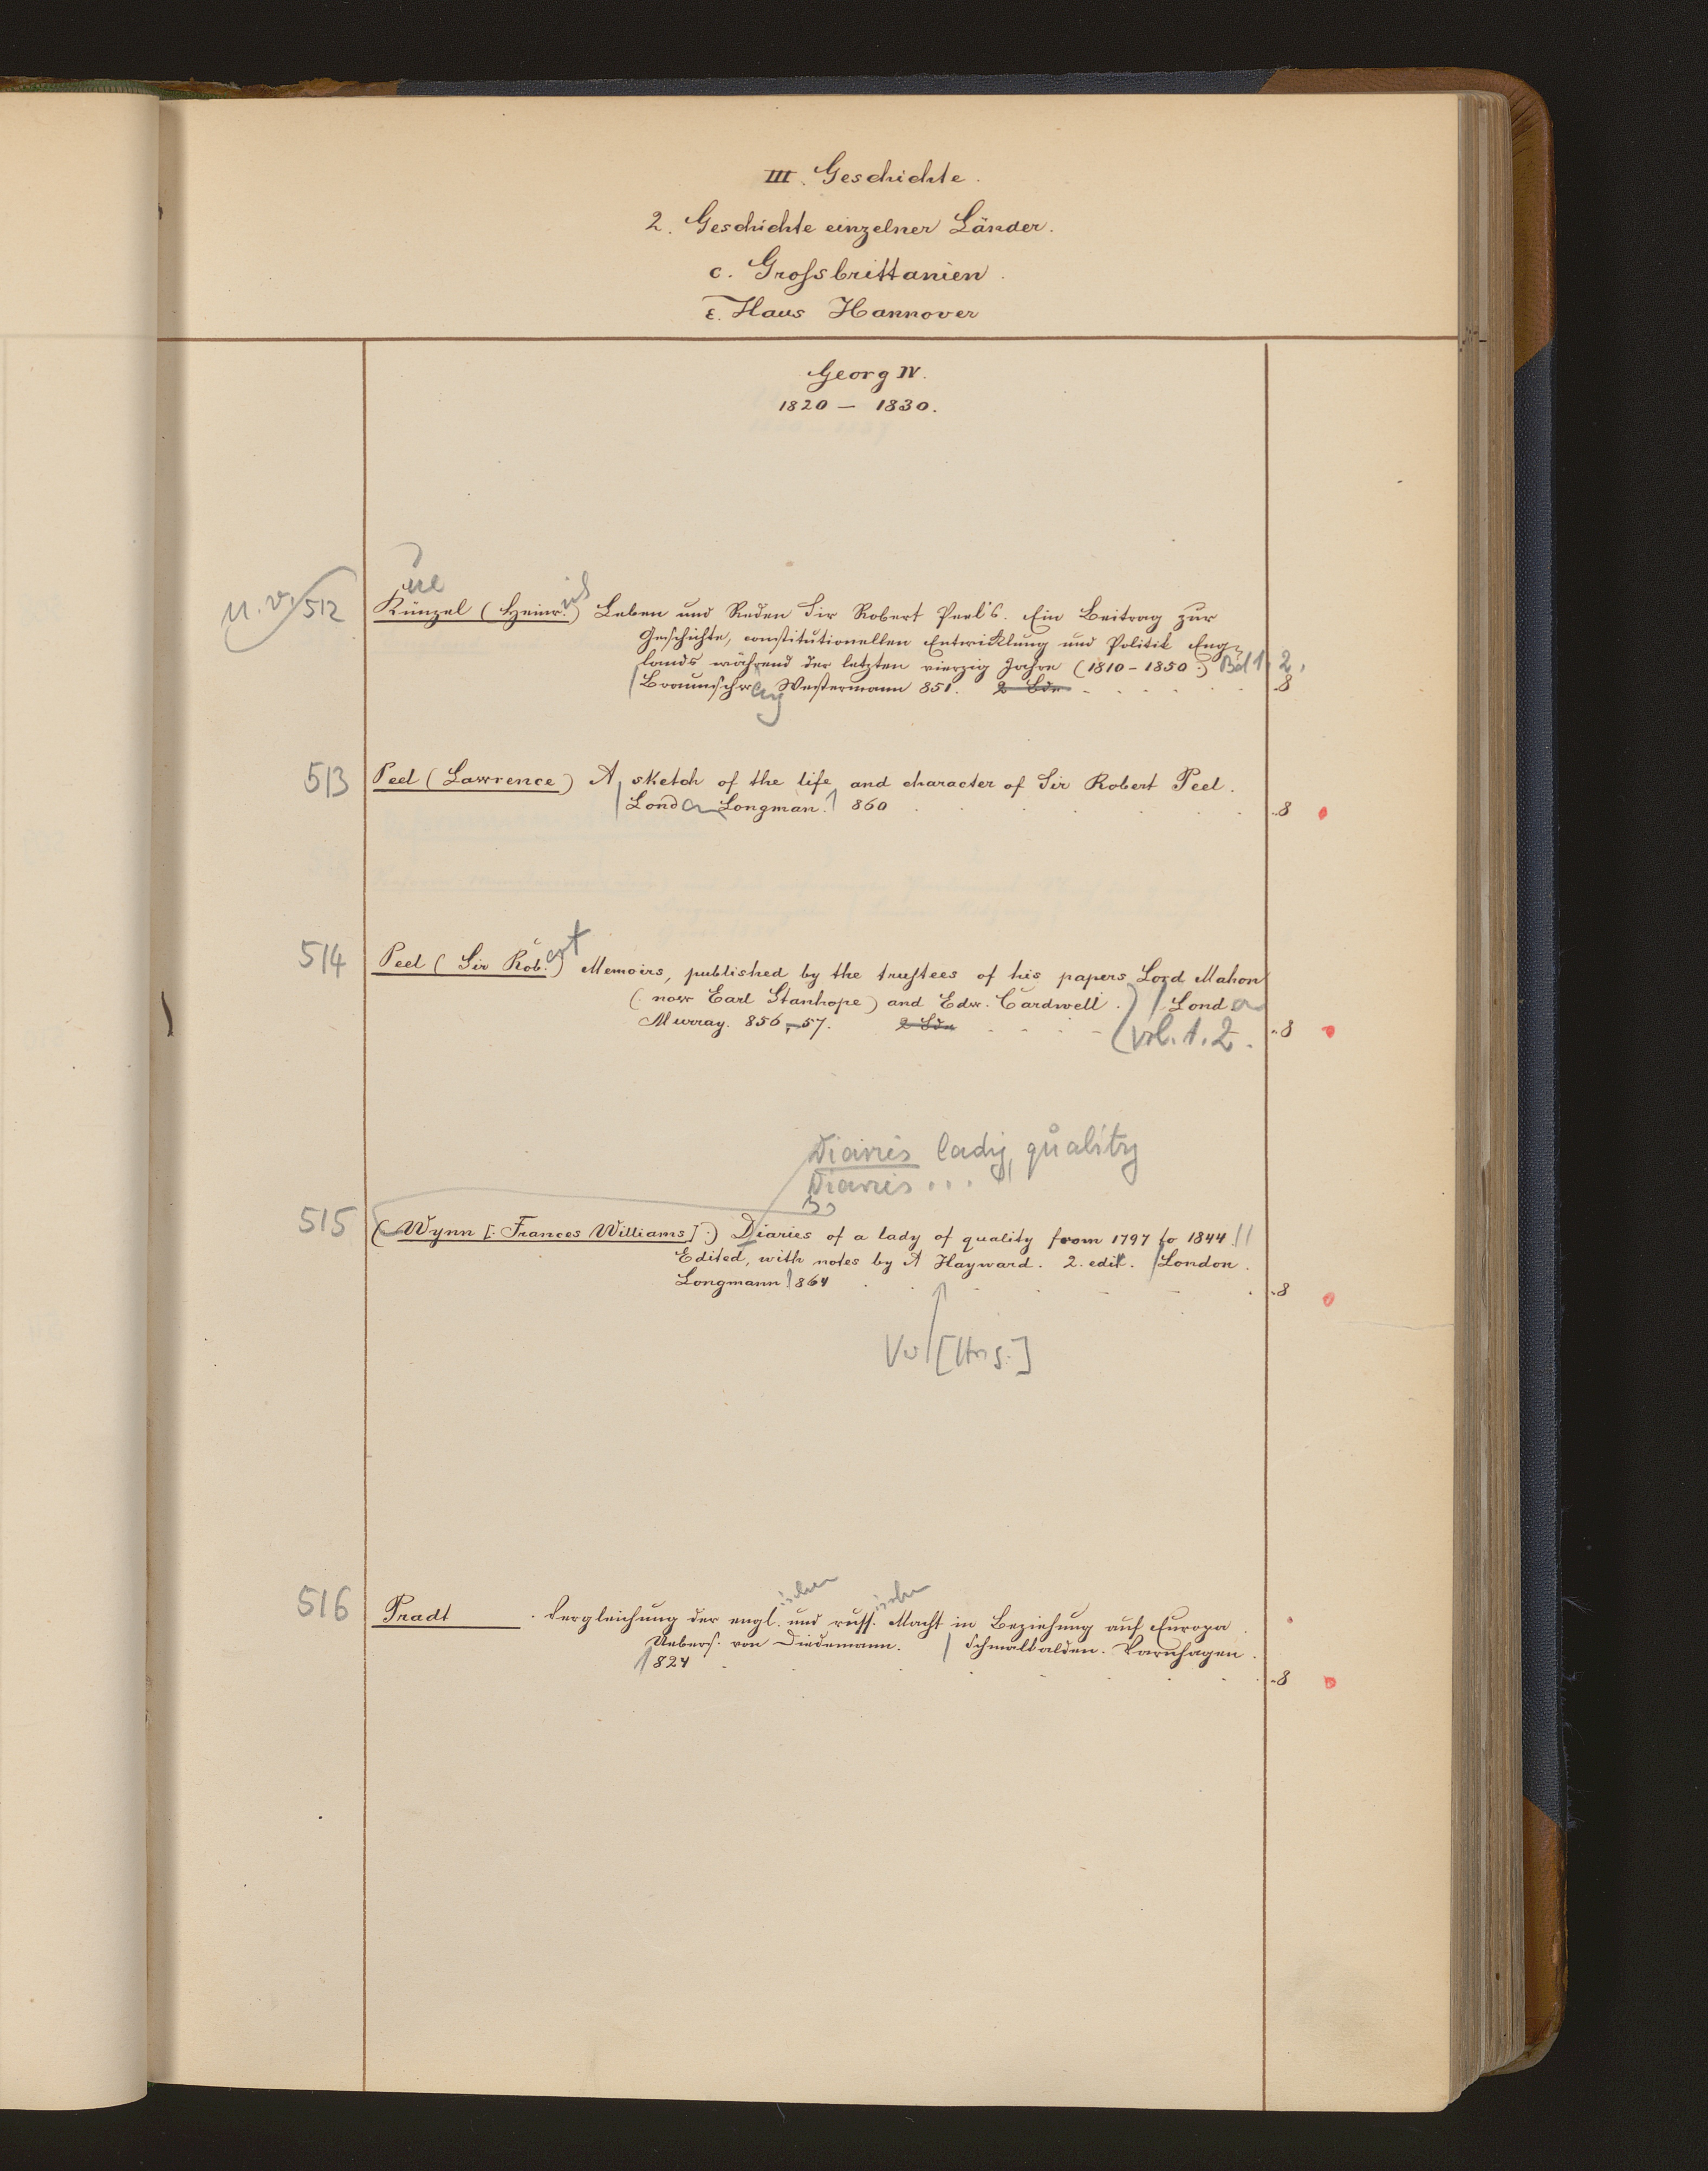 III. Geschichte.
2. Geschichte einzelner Länder.
c. Grossbrittanien.
ε. Haus Hannover
Georg IV.
1820 — 1830.
ue
n. v. 512 Künzel (Heinr.ich) Leben und Reden Sir Robert Peel's. Ein Beitrag zur
Geschichte, constitutionellen Entwicklung und Politik Eng-
lands während der letzten vierzig Jahre (1810-1850.) Bd 1, 2,
Braunschweig Westermann 851. 2 Bde 8
513 Peel (Lawrence) A sketch of the life and character of Sir Robert Peel.
London Longman. 860 8
514 Peel (Sir Rob.ert) Memoirs, published by the trustees of his papers Lord Mahon
(now Earl Stanhope) and Edw. Cardwell.) London
Murray. 856, -57. 2 Bde vol. 1. 2. 8
Diaries lady, quality
Diaries ...
515 (Wynn [: Frances Williams].) Diaries of a lady of quality from 1797 to 1844.
Edited, with notes by A Hayward. 2. edit. London.
Longmann 864 8
Vw [Hrsg.]
ischen ischen
516 Pradt . Vergleichung der engl. und russ. Macht in Beziehung auf Europa.
Uebers. von Diedemann. Schmalkalden. Varnhagen.
824 8